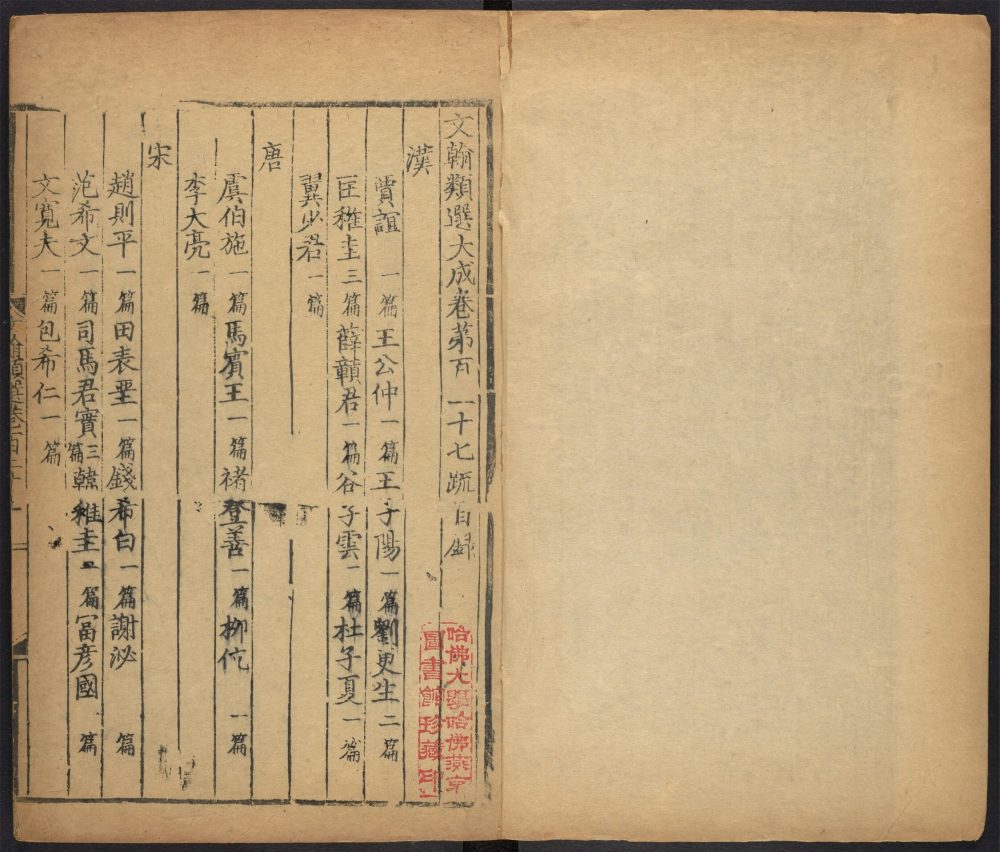 文翰類選大成卷第百一十七疏目錄
漢
賈誼 一篇 王公仲 一篇 王子陽 一篇 劉更生 二篇
匡稚圭 三篇 薛贛君 一篇 谷子雲 一篇 杜子夏 一篇
翼少君 一篇
唐
虞伯施 一篇 馬賓王 一篇 褚登善 一篇 柳伉 一篇
李大亮 一篇
宋
趙則平 一篇 田表聖 一篇 錢希白 一篇 謝泌 篇
范希文 一篇 司馬君實 三篇 韓稚圭 篇 富彥國 篇
文寬夫 一篇 包希仁 一篇
哈佛大學哈佛燕京
圖書館珍藏印